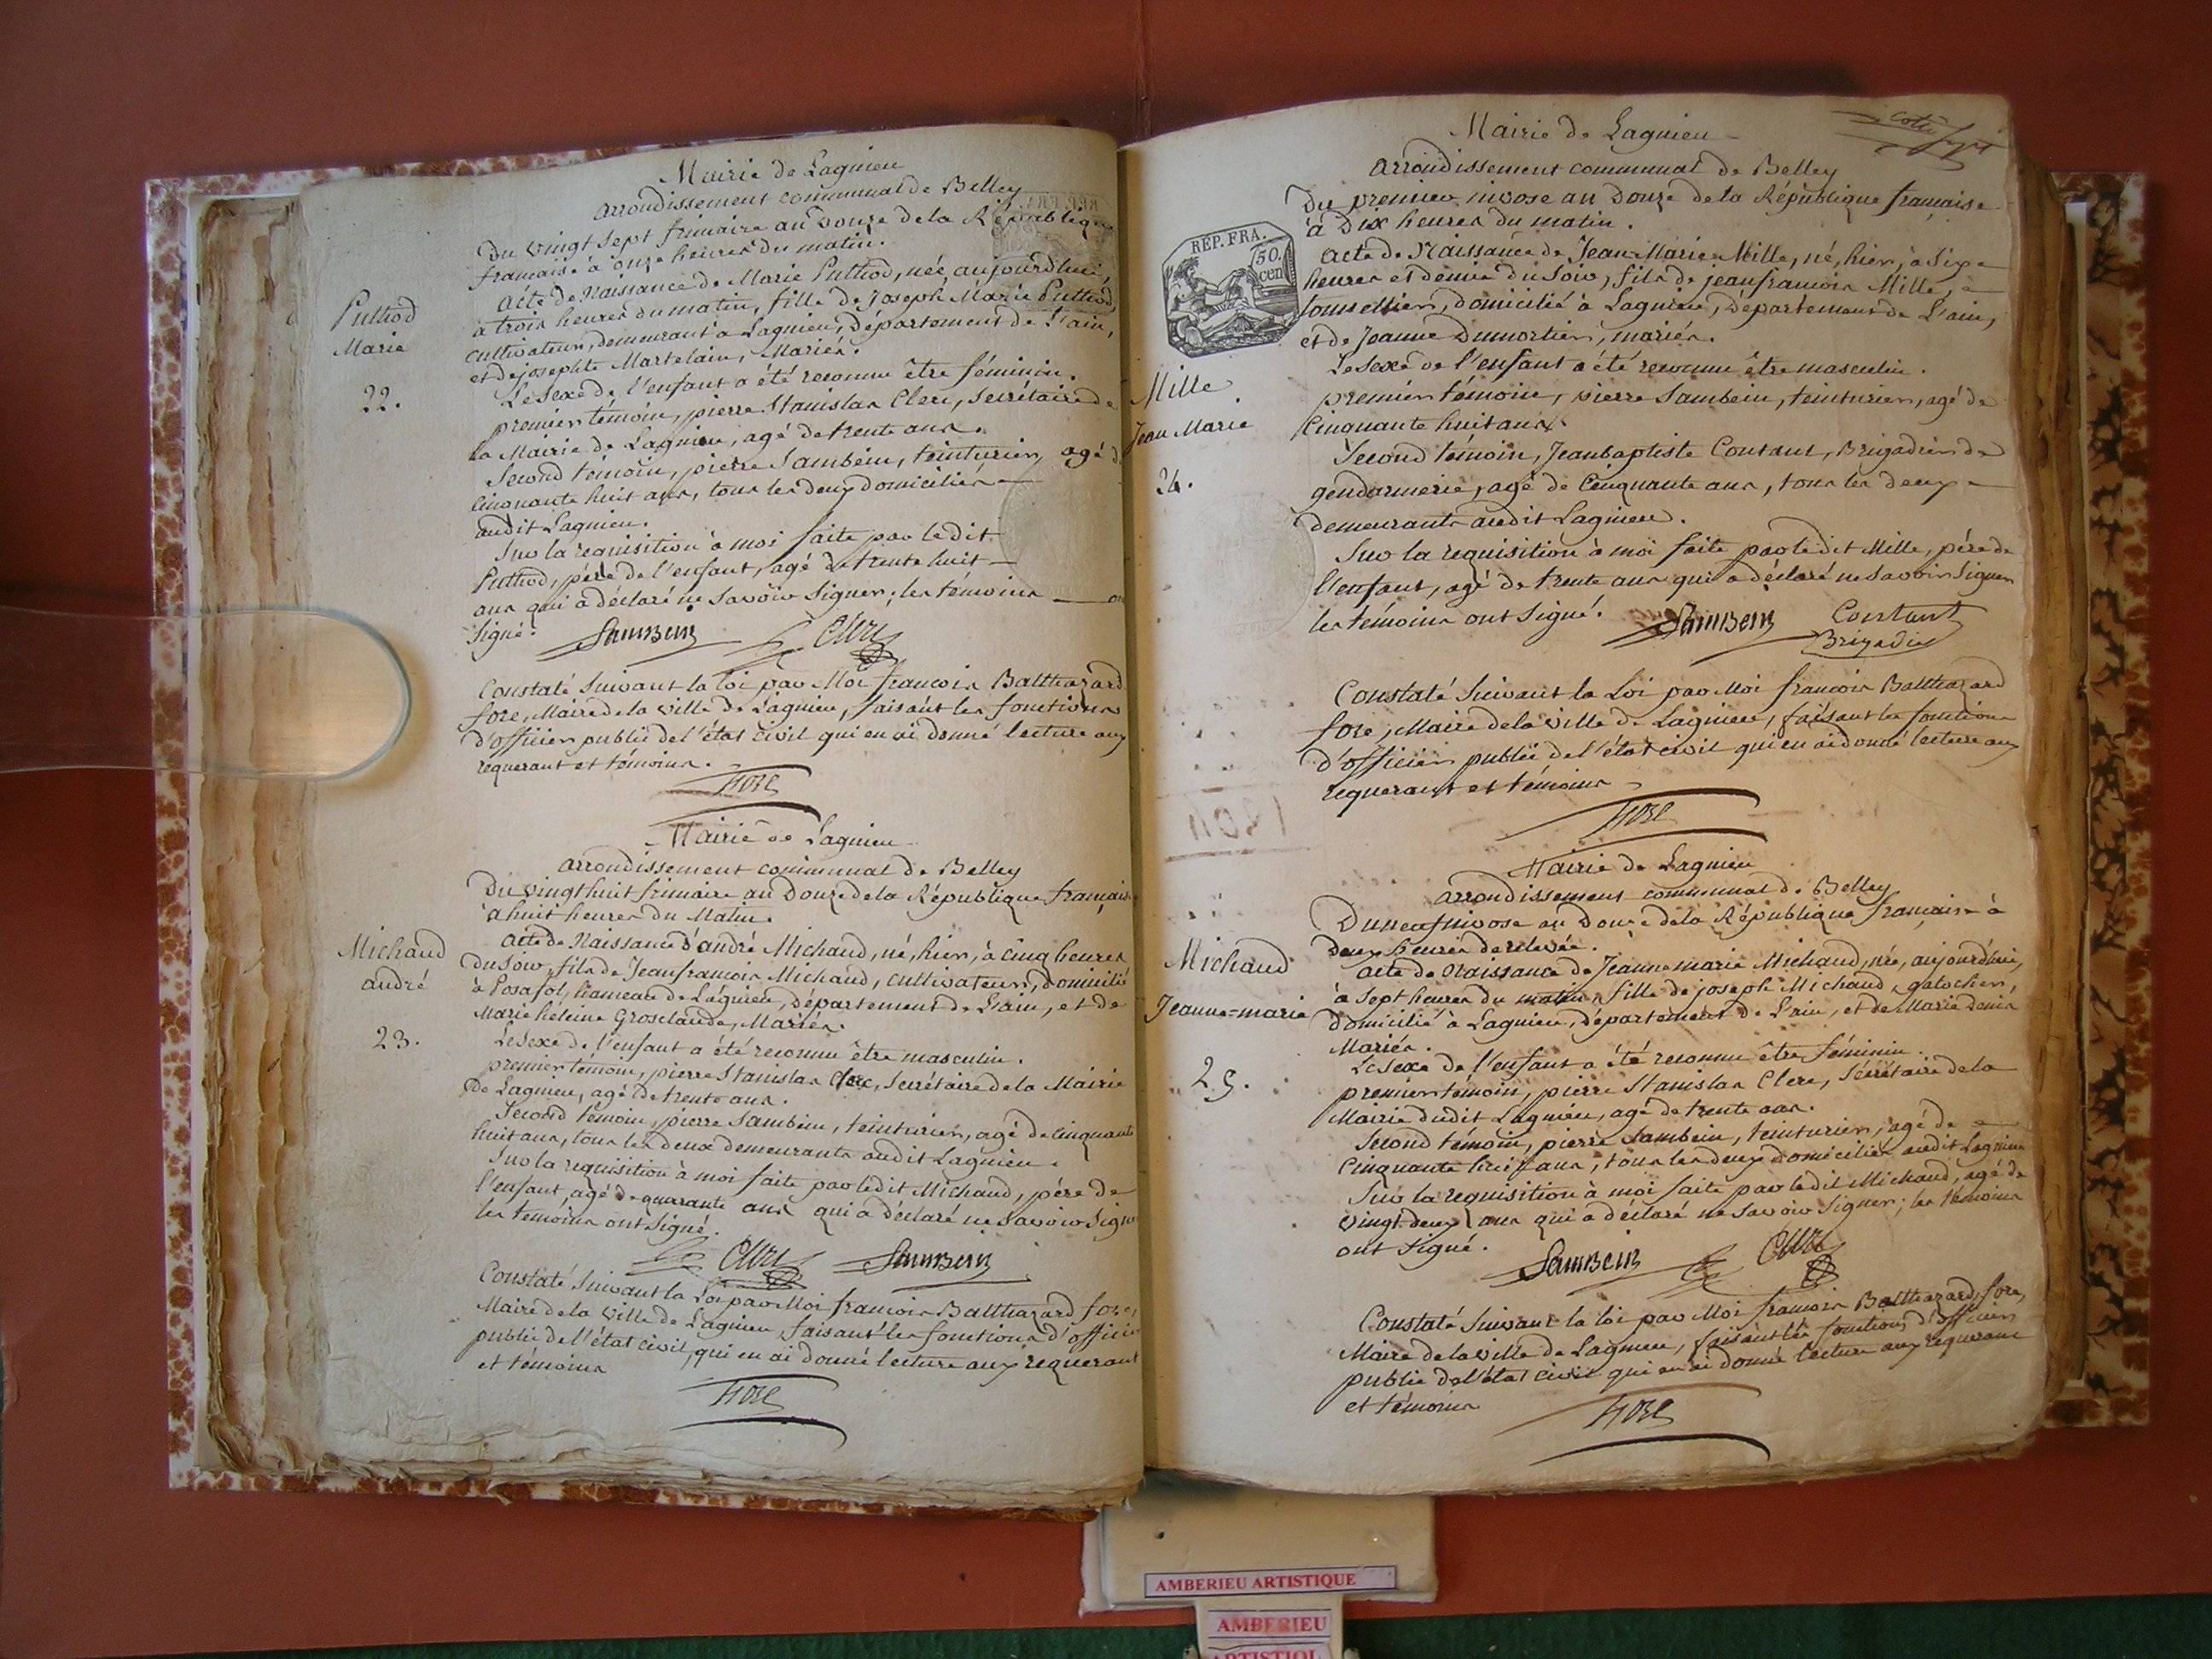 Mairie de Lagnieu
arrondissement communal de Belley
Du vingt sept frimaire an Douze de la République
francaise à onze heures du matin.
Puthod
Marie
22.
acte de Naissance de Marie Puthod, née aujourd'hui,
à trois heures du matin, fille de Joseph Marie Puthod
cultivateur, demeurant à Lagnieu, département de L'ain,
et de josephte Martelain, Mariés.
Le sexe de l'enfant a été reconnu être féminin.
premier témoin, pierre Stanislas Clerc, secrétaire de
la Mairie de Lagnieu, agé de trente ans.
Second témoin, pierre Sambein, teinturier, agé d
cinquante huit ans, tous les deux domiciliés
audit Lagnieu.
Sur la requisition à moi faite par le dit
Puthod, père de l'enfant, agé de trente huit
ans qui a déclaré ne savoir signer; les témoins on
signé.
Sambein Clerc
Constaté suivant la loi par Moi francois Balthazard
fore, Maire de la ville de Lagnieu, faisant les fonctions
d'officier public de l'état civil qui en ai donné lecture aux
requerant et témoins.
fore
Mairie de Lagnieu
arrondissement communal de Belley
Du vingt huit frimaire an Douze de la République francaise
à huit heures du Matin.
Michaud
andré
23.
acte de Naissance d'andré Michaud, né, hier, à cinq heures
du soir, fils de Jean francois Michaud, cultivateur, domicilié
à Posafol, hameau de Lagnieu, département de L'ain, et de
Marie heleine Grosclaude, Mariés.
Le sexe de l'enfant a été reconnu être masculin.
premier témoin, pierre Stanislas Clerc, secrétaire de la Mairie
de Lagnieu, agé de trente ans.
Second témoin, pierre Sambein, teinturier, agé de cinquante
huit ans, tous les deux demeurants audit Lagnieu.
Sur la requisition à moi faite par ledit Michaud, père de
l'enfant agé de quarante ans qui a déclaré ne savoir signe
les témoins ont signé.
Clerc Sambein
Constaté suivant la Loi par Moi francois Balthazard fore,
Maire de la ville de Lagnieu, faisant les fonctions d'officier
public de l'état civil, qui en ai donné lecture aux requerant
et témoins
fore
Mairie de Lagnieu
arrondissement communal de Belley
Du premier nivose an Douze de la République francaise
à Dix heures du matin.
RÉP. FRA.
50
cen
Mille
Jean Marie
24.
acte de Naissance de Jean-Marie Mille, né, hier, à six
heures et demie du soir, fils de jean francois Mille,
tonnellier, domicilié à Lagnieu, département de L'ain,
et de Jeanne Dumortier, mariés.
Le sexe de l'enfant a été reconnu être masculin.
premier témoin, pierre Sambein, teinturier, agé de
cinquante huit ans.
Second témoin, Jean baptiste Contant, Brigadier de
gendarmerie, agé de Cinquante ans, tous les deux
demeurants audit Lagnieu.
Sur la requisition à moi faite par le dit Mille, père de
l'enfant, agé de trente ans qui a déclaré ne savoir signer
les témoins ont signé.
Sambein Constant
Brigadier
Constaté suivant la Loi par Moi francois Balthazard
fore, Maire de la ville de Lagnieu, faisant les fonctions
d'officier public de l'état civil qui en ai donné lecture aux
requerant et témoins
fore
Mairie de Lagnieu
arrondissement communal de Belley
Du neuf nivose an Douze de la République francaise à
deux heures de relevée.
Michaud
Jeanne=marie
25.
acte de Naissance de Jeanne marie Michaud, née, aujourd'hui,
à sept heures du matin, fille de joseph Michaud, galocher,
domicilié à Lagnieu, département de L'ain, et de Marie Denis
Mariés.
Le sexe de l'enfant a été reconnu être féminin.
premier témoin, pierre Stanislas Clerc, sécrétaire de la
Mairie dudit Lagnieu, agé de trente ans.
Second témoin, pierre Sambein, teinturier, agé de
Cinquante huit ans, tous les deux domiciliés audit Lagnieu
Sur la requisition à moi faite par ledit Michaud, agé de
vingt deux ans qui a déclaré ne savoir signer; les témoins
ont signé.
Sambein Clerc
Constaté suivant la loi par Moi francois Balthazard fore,
Maire de la ville de Lagnieu, faisant les fonctions d'officier
public de l'état civil qui en ai donné lecture aux requerant
et témoins
fore
AMBERIEU ARTISTIQUE
AMBERIEU
ARTISTIQU